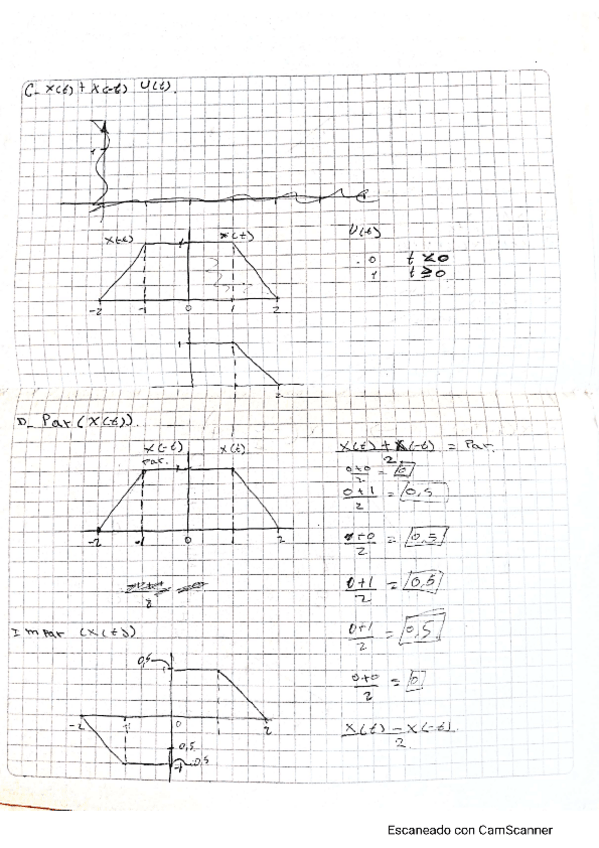 C_ x(t) + x(-t) U(t).
1
x(-t) 1 x(t)
U(t)
0 t < 0
1 t ≥ 0
-2 -1 0 1 2
1
2
D_ Par (x(t)).
x(-t) x(t)
Par.
-2 -1 0 1 2
x(t) + x(-t) = Par.
2
0+0 = 0
2
0+1 = 0,5
2
+0 = 0,5
2
0+1 = 0,5
2
0+1 = 0,5
2
0+0 = 0
2
x(t) - x(-t).
2
Impar (x(t))
0,5
-2 0 2
0,5
-1 0,5
Escaneado con CamScanner